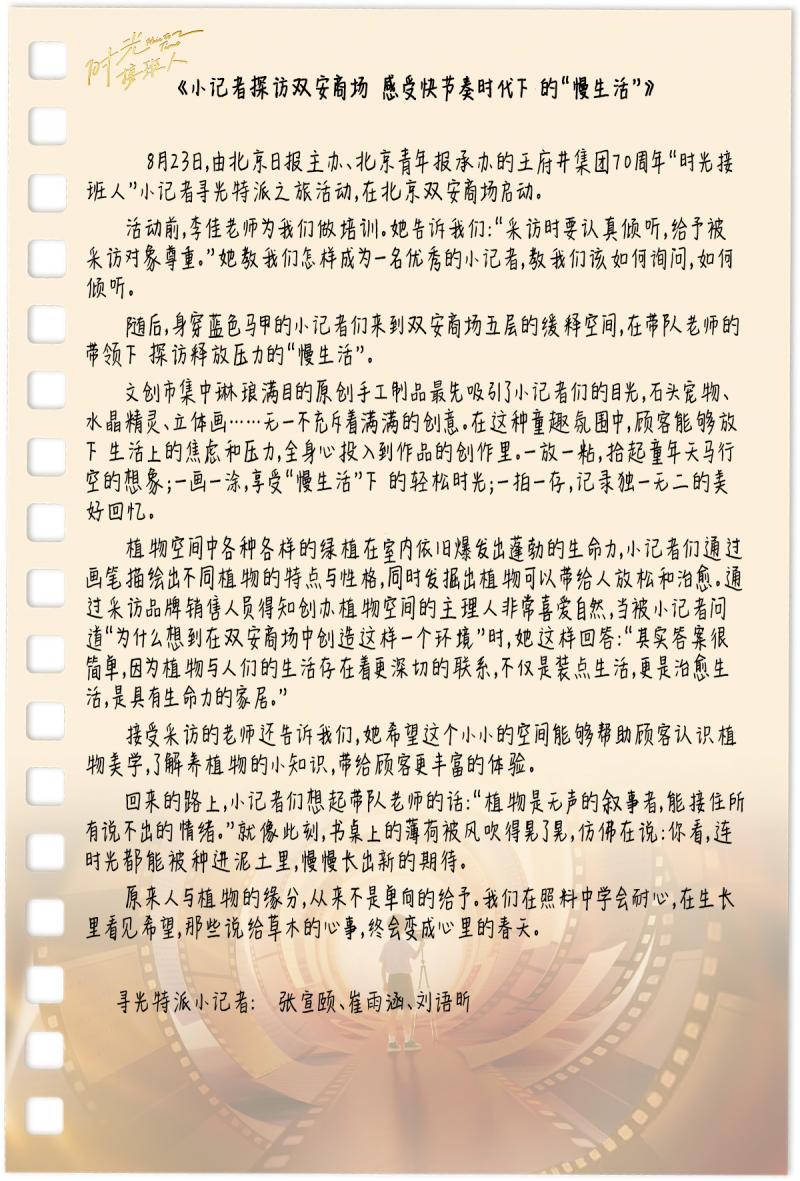 时光接班人
《小记者探访双安商场 感受快节奏时代下 的“慢生活”》
8月23日,由北京日报主办、北京青年报承办的王府井集团70周年“时光接
班人”小记者寻光特派之旅活动,在北京双安商场启动。
活动前,李佳老师为我们做培训。她告诉我们:“采访时要认真倾听,给予被
采访对象尊重。”她教我们怎样成为一名优秀的小记者,教我们该如何询问,如何
倾听。
随后,身穿蓝色马甲的小记者们来到双安商场五层的缓释空间,在带队老师的
带领下 探访释放压力的“慢生活”。
文创市集中琳琅满目的原创手工制品最先吸引了小记者们的目光,石头宠物、
水晶精灵、立体画……无一不充斥着满满的创意。在这种童趣氛围中,顾客能够放
下 生活上的焦虑和压力,全身心投入到作品的创作里。一放一粘,拾起童年天马行
空的想象;一画一涂,享受“慢生活”下 的轻松时光;一拍一存,记录独一无二的美
好回忆。
植物空间中各种各样的绿植在室内依旧爆发出蓬勃的生命力,小记者们通过
画笔描绘出不同植物的特点与性格,同时发掘出植物可以带给人放松和治愈。通
过采访品牌销售人员得知创办植物空间的主理人非常喜爱自然,当被小记者问
道“为什么想到在双安商场中创造这样一个环境”时,她这样回答:“其实答案很
简单,因为植物与人们的生活存在着更深切的联系,不仅是装点生活,更是治愈生
活,是具有生命力的家居。”
接受采访的老师还告诉我们,她希望这个小小的空间能够帮助顾客认识植
物美学,了解养植物的小知识,带给顾客更丰富的体验。
回来的路上,小记者们想起带队老师的话:“植物是无声的叙事者,能接住所
有说不出的情绪。”就像此刻,书桌上的薄荷被风吹得晃了晃,仿佛在说:你看,连
时光都能被种进泥土里,慢慢长出新的期待。
原来人与植物的缘分,从来不是单向的给予。我们在照料中学会耐心,在生长
里看见希望,那些说给草木的心事,终会变成心里的春天。
寻光特派小记者: 张宣颐、崔雨涵、刘语昕